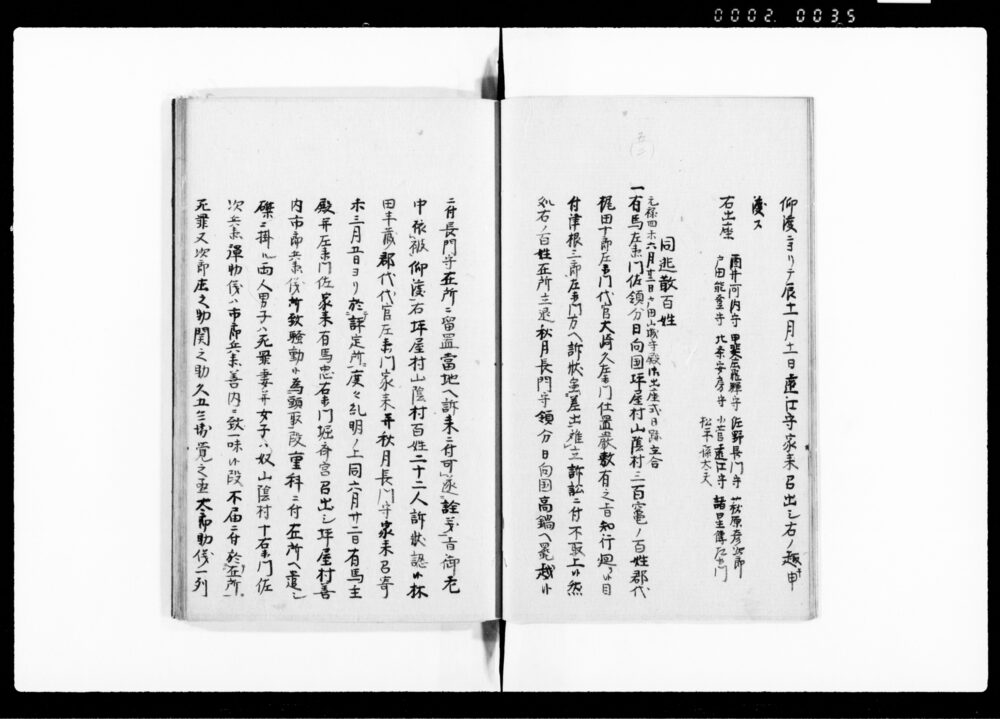 0002. 0035
仰渡ニヨリテ辰十一月十一日遠江守家来召出シ右ノ趣申
渡ス
右出座
酒井河内守 甲斐庄飛騨守 佐野長門守 萩原彦次郎
戸田能登守 北条安房守 小菅遠江守 諸星傳左衛門
松平孫太夫
同逃散百姓
元禄四未六月廿二日戸田山城守殿御出座式日立合
一有馬左衛門佐領分日向国坪屋村山蔭村三百竈ノ百姓郡代
梶田十郎左衛門代官大崎久左衛門仕置厳敷有之旨知行廻リ目
付津根三郎左衛門方ヘ訴状差出難立訴訟ニ付不取上候然
処右ノ百姓在所立退秋月長門守領分日向国高鍋ヘ罷越候
ニ付長門守在所ニ留置當地ヘ訴来ニ付可遂詮義旨御老
中依被仰渡右坪屋村山蔭村百姓二十二人訴状認候林
田半蔵郡代代官左衛門家来并秋月長門守家来召寄
未三月五日ヨリ於評定所度々糺明ノ上同六月廿二日有馬主
殿并左衛門佐家来有馬忠右衛門堀斎宮召出シ坪屋村善
内市郎兵衛儀所致騒動候為頭取段重科ニ付在所ヘ遣シ
磔ニ掛ル両人男子ハ死罪妻并女子ハ奴山蔭村十右衛門佐
次兵衛弾助儀ハ市郎兵衛善内ニ致一味候段不届ニ付於在所
死罪又次郎庄之助関之助久五三郎覚之丞太郎助儀一列